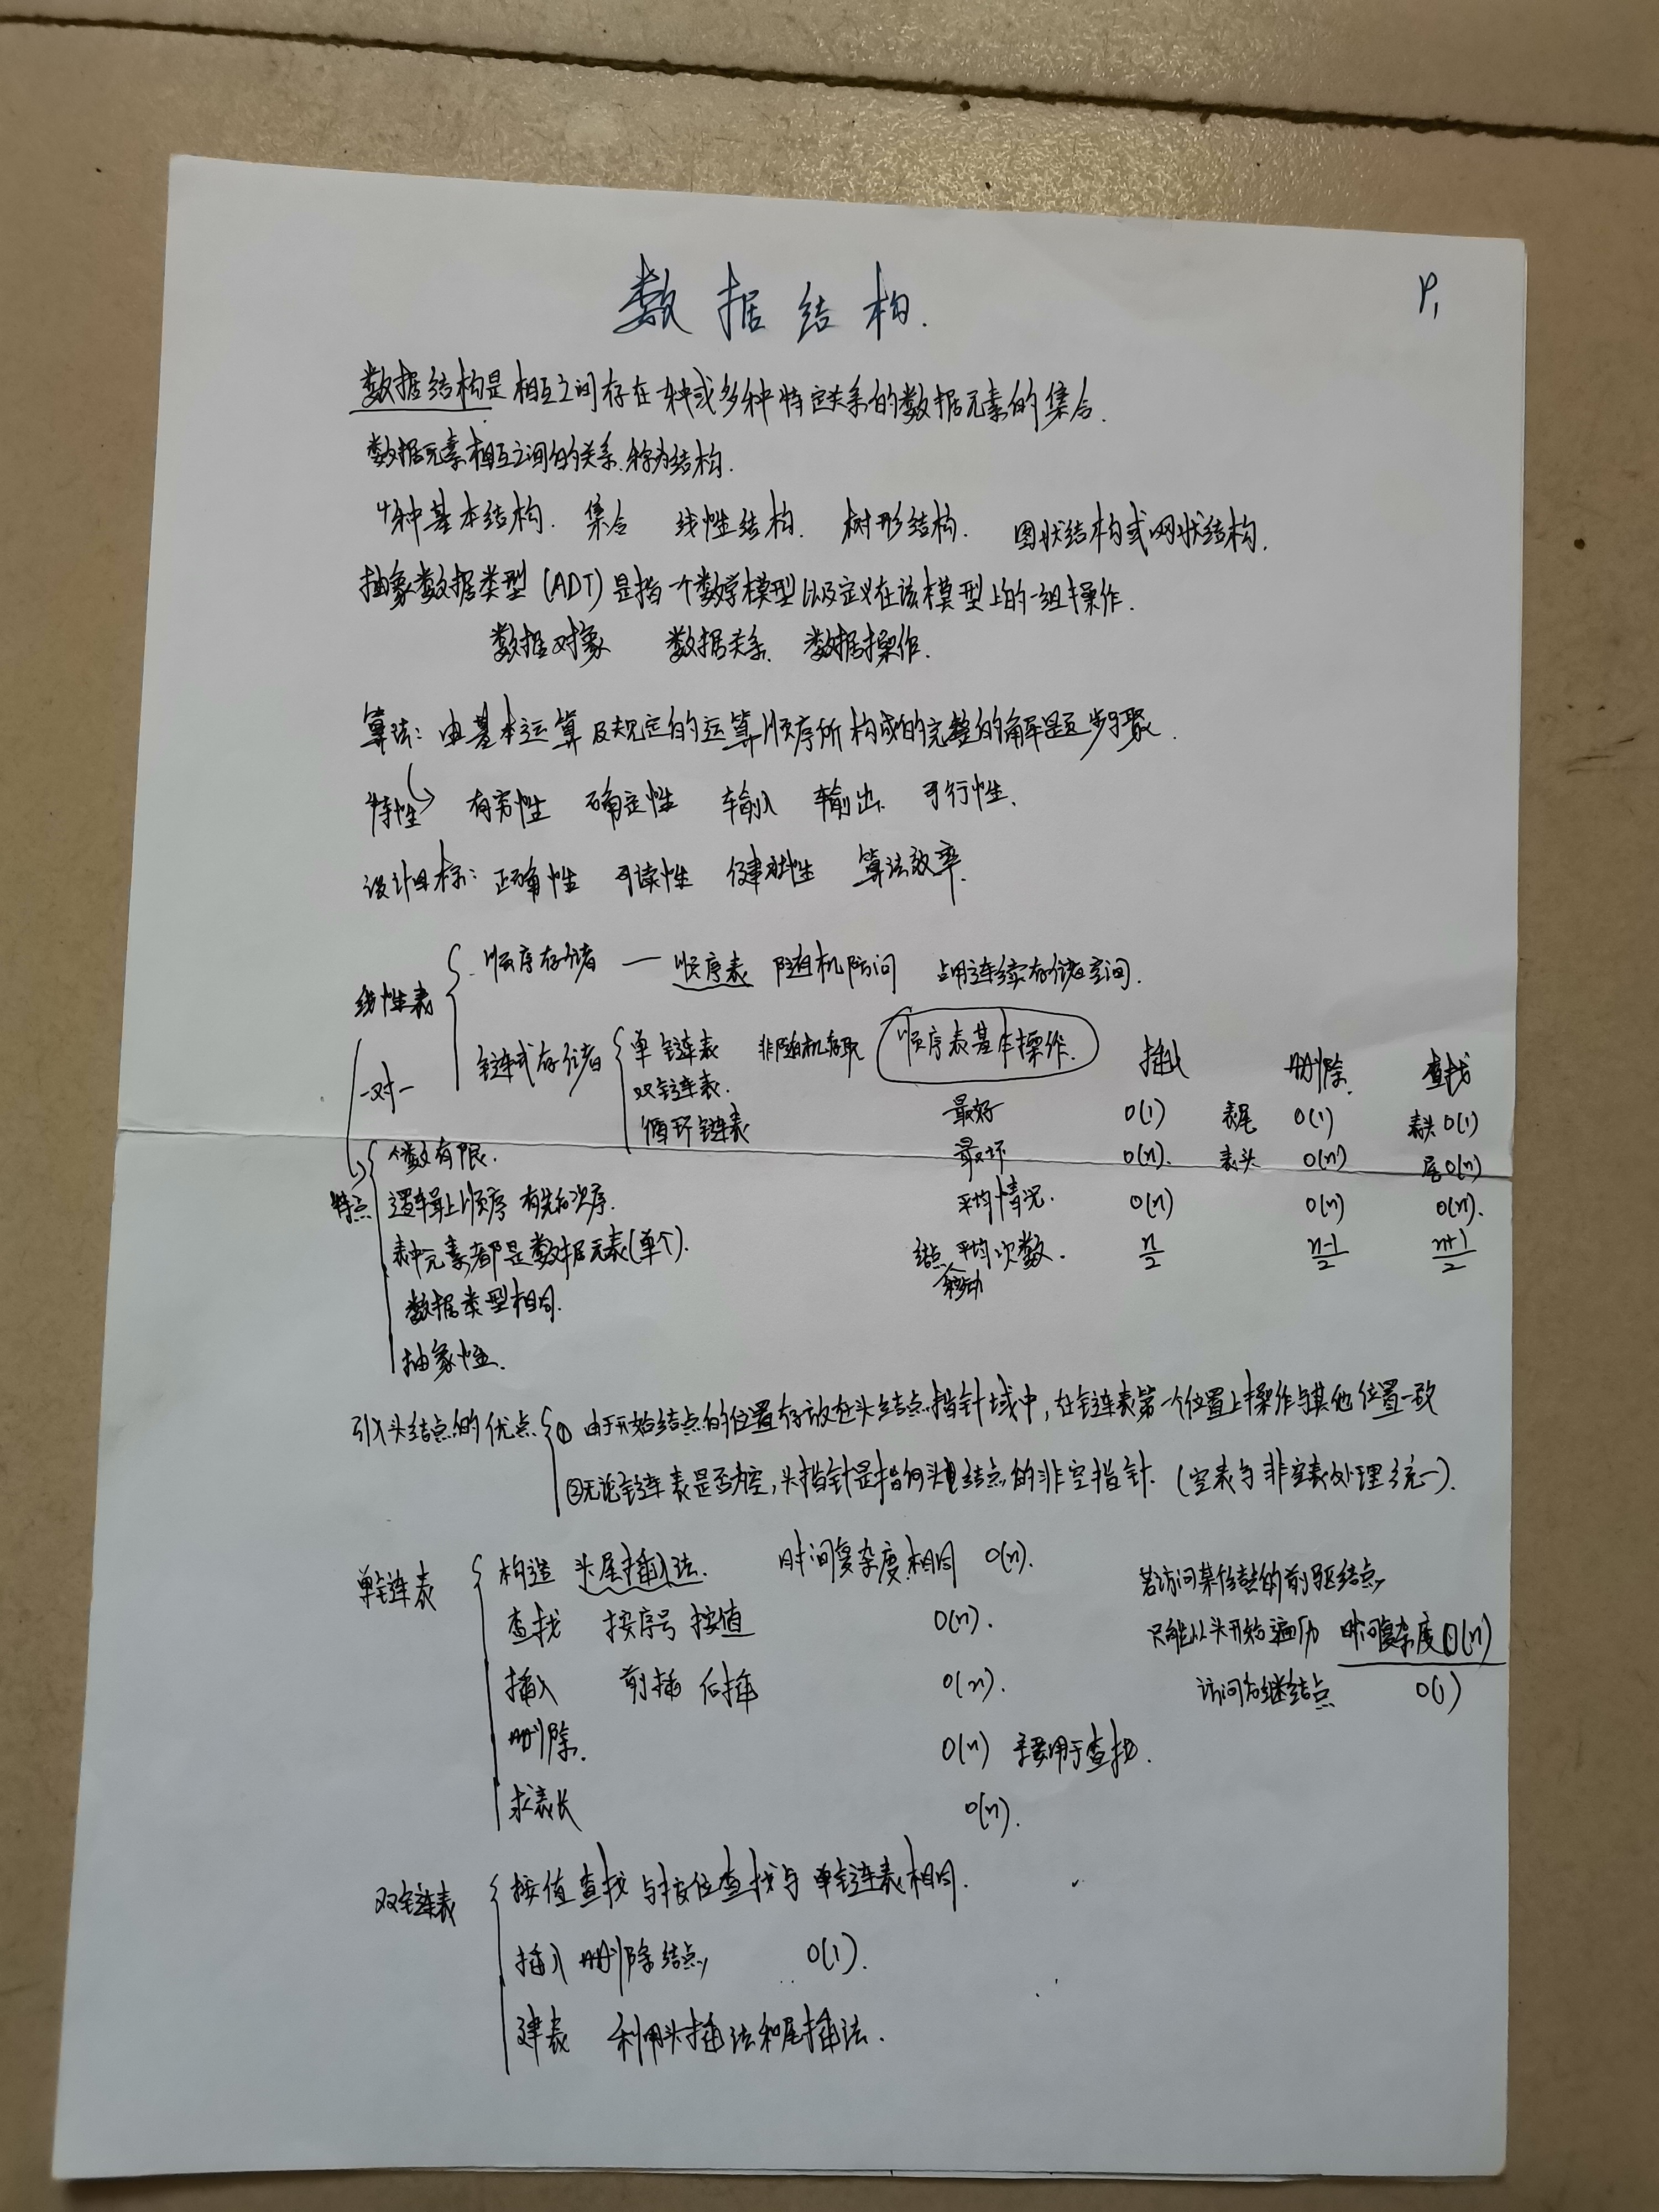 数据结构.
P1
数据结构是相互之间存在一种或多种特定关系的数据元素的集合.
数据元素相互之间的关系.称为结构.
4种基本结构. 集合 线性结构. 树形结构. 图状结构或网状结构.
抽象数据类型(ADT)是指一个数学模型以及定义在该模型上的一组操作.
数据对象 数据关系. 数据操作.
算法: 由基本运算及规定的运算顺序所构成的完整的解题步骤.
特性 有穷性 确定性 输入 输出. 可行性.
设计目标: 正确性 可读性 健壮性 算法效率.
线性表
顺序存储 — 顺序表 随机访问 占用连续存储空间.
链式存储 单链表 非随机存取
双链表.
循环链表
一对一
顺序表基本操作. 插入 删除. 查找
最好 O(1) 表尾 O(1) 表头O(1)
最坏 O(n). 表头 O(n) 尾O(n)
平均情况. O(n) O(n) O(n).
结点移动平均次数. n/2 n-1/2 n+1/2
特点
个数有限.
逻辑上顺序 有先后次序.
表中元素都是数据元素(单个).
数据类型相同.
抽象性.
引入头结点的优点 ①由于开始结点的位置存放在头结点指针域中,在链表第一个位置上操作与其他位置一致
②无论链表是否为空,头指针是指向头结点的非空指针. (空表与非空表处理统一).
单链表
构造 头尾插入法. 时间复杂度相同 O(n).
查找 按序号 按值 O(n).
插入 前插 后插 O(n).
删除. O(n) 主要用于查找.
求表长 O(n).
若访问某个结点的前驱结点,
只能从头开始遍历 时间复杂度O(n)
访问后继结点 O(1)
双链表
按值查找与按位查找与单链表相同.
插入 删除结点, O(1).
建表 利用头插法和尾插法.